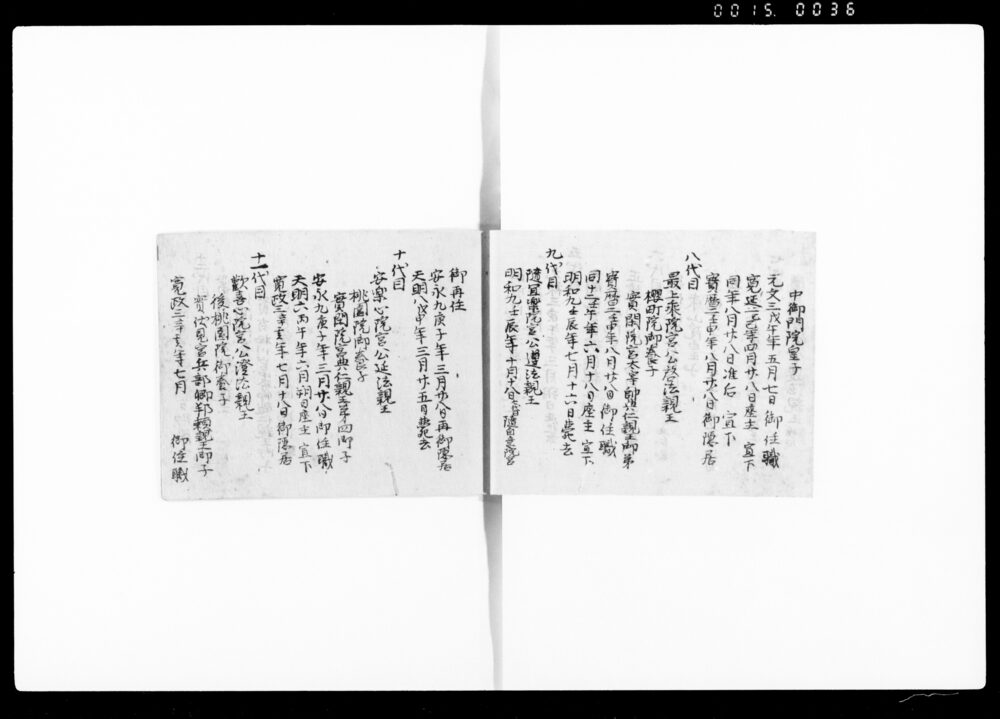 0015. 0036
中御門院皇子
元文三戊午年五月七日御住職
寛延二己巳年四月廿八日座主 宣下
同年八月廿八日准后 宣下
寶暦二壬申年八月廿八日御隠居
八代目
最上乘院宮公啓法親王
櫻町院御養子
實閑院宮太宰帥 仁親王御弟
寶暦二壬申年八月廿八日御住職
同十二壬午年六月十八日座主 宣下
明和九壬辰年七月十六日薨去
九代目
隨宜樂院宮公遵法親王
明和九壬辰年十月十日 隨自意院宮
御再住
安永九庚子年三月廿八日再御隠居
天明八戊申年三月廿五日薨去
十代目
安樂心院宮公延法親王
桃園院御養子
實閑院宮典仁親王第四御子
安永九庚子年三月廿八日御住職
天明六丙午年六月朔日座主 宣下
寛政三辛亥年七月十八日御隠居
十一代目
歡喜心院宮公澄法親王
後桃園院御養子
實伏見宮兵部卿邦頼親王御子
寛政三辛亥年七月 御住職